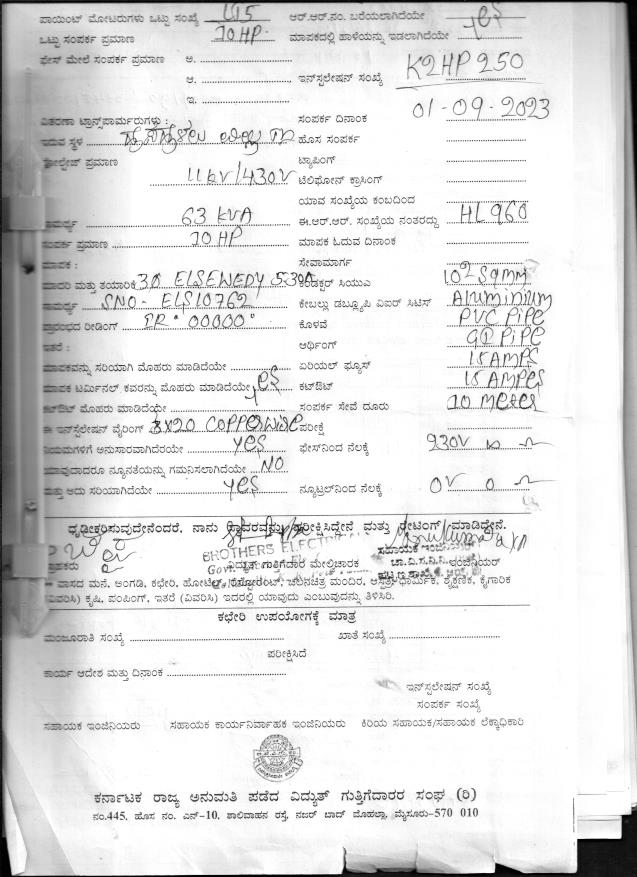 ಪಾಯಿಂಟ್ ಮೋಟರುಗಳು ಒಟ್ಟು ಸಂಖ್ಯೆ ಆರ್.ಆರ್.ನಂ. ಬರೆಯಲಾಗಿದೆಯೇ yes
ಒಟ್ಟು ಸಂಪರ್ಕ ಪ್ರಮಾಣ 10 HP ಮಾಪಕದಲ್ಲಿ ಹಾಳೆಯನ್ನು ಇಡಲಾಗಿದೆಯೇ
ಫೇಸ್ ಮೇಲೆ ಸಂಪರ್ಕ ಪ್ರಮಾಣ ಅ.
ಆ. ಇನ್‌ಸ್ಟಲೇಷನ್ ಸಂಖ್ಯೆ K2HP 250
ಇ.
ವಿತರಣಾ ಟ್ರಾನ್ಸ್‌ಪಾರ್ಮರುಗಳು : ಸಂಪರ್ಕ ದಿನಾಂಕ 01-09-2023
ಇರುವ ಸ್ಥಳ ಹೊಸ ಸಂಪರ್ಕ
ವೋಲ್ಟೇಜ್ ಪ್ರಮಾಣ ಟ್ಯಾಪಿಂಗ್
11kV/430V ಟೆಲಿಫೋನ್ ಕ್ರಾಸಿಂಗ್
ಯಾವ ಸಂಖ್ಯೆಯ ಕಂಬದಿಂದ
ಸಾಮರ್ಥ್ಯ 63 kVA ಈ.ಆರ್.ಆರ್. ಸಂಖ್ಯೆಯ ನಂತರದ್ದು HL960
ಸಂಪರ್ಕ ಪ್ರಮಾಣ 10 HP ಮಾಪಕ ಓದುವ ದಿನಾಂಕ
ಮಾಪಕ : ಸೇವಾಮಾರ್ಗ
ಮಾದರಿ ಮತ್ತು ತಯಾರಿಕೆ 3Ø ELSEWEDY 5-30A ಕಂಡಕ್ಟರ್ ಸಿಯುಎ 10² Sqmm
ಸಾಮರ್ಥ್ಯ SNO- ELS10762 ಕೇಬಲ್ಲು ಡಬ್ಲ್ಯೂಪಿ ವಿಐರ್ ಸಿಟಿಸ್ Aluminium
ಪ್ರಾರಂಭದ ರೀಡಿಂಗ್ 00000 ಕೊಳವೆ PVC PiPE
ಇತರೆ : ಅರ್ಥಿಂಗ್ GI PiPE
ಮಾಪಕವನ್ನು ಸರಿಯಾಗಿ ಮೊಹರು ಮಾಡಿದೆಯೇ ಏರಿಯಲ್ ಫ್ಯೂಸ್ 15 AMPS
ಮಾಪಕ ಟರ್ಮಿನಲ್ ಕವರನ್ನು ಮೊಹರು ಮಾಡಿದೆಯೇ yes ಕಟ್‌ಔಟ್ 15 AMPES
ಕಟ್‌ಔಟ್ ಮೊಹರು ಮಾಡಿದೆಯೇ ಸಂಪರ್ಕ ಸೇವೆ ದೂರು 10 meter
ಈ ಇನ್‌ಸ್ಟಲೇಷನ್ ವೈರಿಂಗ್ ಪರೀಕ್ಷೆ
ನಿಯಮಗಳಿಗೆ ಅನುಸಾರವಾಗಿದೆಯೇ yes ಫೇಸ್‌ನಿಂದ ನೆಲಕ್ಕೆ 230V
ಯಾವುದಾದರೂ ನ್ಯೂನತೆಯನ್ನು ಗಮನಿಸಲಾಗಿದೆಯೇ NO
ಮತ್ತು ಅದು ಸರಿಯಾಗಿದೆಯೇ yes ನ್ಯೂಟ್ರಲ್‌ನಿಂದ ನೆಲಕ್ಕೆ 0V
ಧೃಢೀಕರಿಸುವುದೇನೆಂದರೆ, ನಾನು ಸ್ಥಾವರವನ್ನು ಪರೀಕ್ಷಿಸಿದ್ದೇನೆ ಮತ್ತು ರೇಟಿಂಗ್ ಮಾಡಿದ್ದೇನೆ.
BROTHERS ELECTRICAL ಸಹಾಯಕ
ಗ್ರಾಹಕರು ವಿದ್ಯುತ್ ಗುತ್ತಿಗೆದಾರ ಮೇಲ್ವಿಚಾರಕ ಇಂಜಿನಿಯರ್
ವಾಸದ ಮನೆ, ಅಂಗಡಿ, ಕಛೇರಿ, ಹೋಟೆಲ್, ರೆಸ್ಟೋರೆಂಟ್, ಚಲನಚಿತ್ರ ಮಂದಿರ, ಆಸ್ಪತ್ರೆ, ಧಾರ್ಮಿಕ, ಶೈಕ್ಷಣಿಕ, ಕೈಗಾರಿಕ
(ವಿವರಿಸಿ) ಕೃಷಿ, ಪಂಪಿಂಗ್, ಇತರೆ (ವಿವರಿಸಿ) ಇದರಲ್ಲಿ ಯಾವುದು ಎಂಬುವುದನ್ನು ತಿಳಿಸಿರಿ.
ಕಛೇರಿ ಉಪಯೋಗಕ್ಕೆ ಮಾತ್ರ
ಮಂಜೂರಾತಿ ಸಂಖ್ಯೆ ಖಾತೆ ಸಂಖ್ಯೆ
ಪರೀಕ್ಷಿಸಿದೆ
ಕಾರ್ಯ ಆದೇಶ ಮತ್ತು ದಿನಾಂಕ
ಇನ್‌ಸ್ಟಲೇಷನ್ ಸಂಖ್ಯೆ
ಸಂಪರ್ಕ ಸಂಖ್ಯೆ
ಸಹಾಯಕ ಇಂಜಿನಿಯರು ಸಹಾಯಕ ಕಾರ್ಯನಿರ್ವಾಹಕ ಇಂಜಿನಿಯರು ಕಿರಿಯ ಸಹಾಯಕ/ಸಹಾಯಕ ಲೆಕ್ಕಾಧಿಕಾರಿ
ಕರ್ನಾಟಕ ರಾಜ್ಯ ಅನುಮತಿ ಪಡೆದ ವಿದ್ಯುತ್ ಗುತ್ತಿಗೆದಾರರ ಸಂಘ (ರಿ)
ನಂ.445, ಹೊಸ ನಂ. ಎನ್-10, ಶಾಲಿವಾಹನ ರಸ್ತೆ, ನಜರ್ ಬಾದ್ ಮೊಹಲ್ಲಾ, ಮೈಸೂರು-570 010